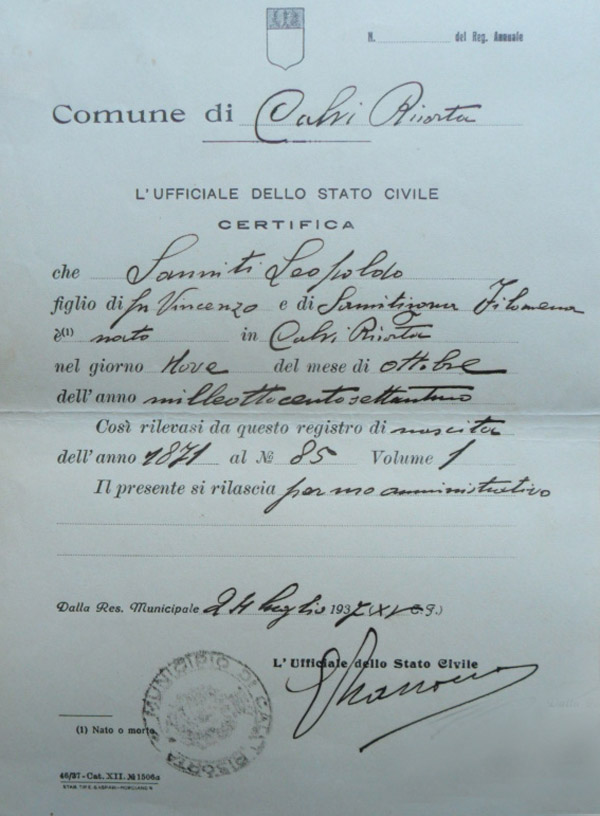 N. del Reg. Annuale
Comune di Calvi Risorta
L'UFFICIALE DELLO STATO CIVILE
CERTIFICA
che Sanniti Leopoldo
figlio di fu Vincenzo e di Filomena
è(1) nato in Calvi Risorta
nel giorno Nove del mese di ottobre
dell'anno milleottocentosettantuno
Così rilevasi da questo registro di nascita
dell'anno 1871 al № 85 Volume 1
Il presente si rilascia per uso amministrativo
Dalla Res. Municipale 24 luglio 1937 (XV E.F.)
L'Ufficiale dello Stato Civile
MUNICIPIO DI CALVI RISORTA
(1) Nato o morto
46/37 - Cat. XII. № 1506a